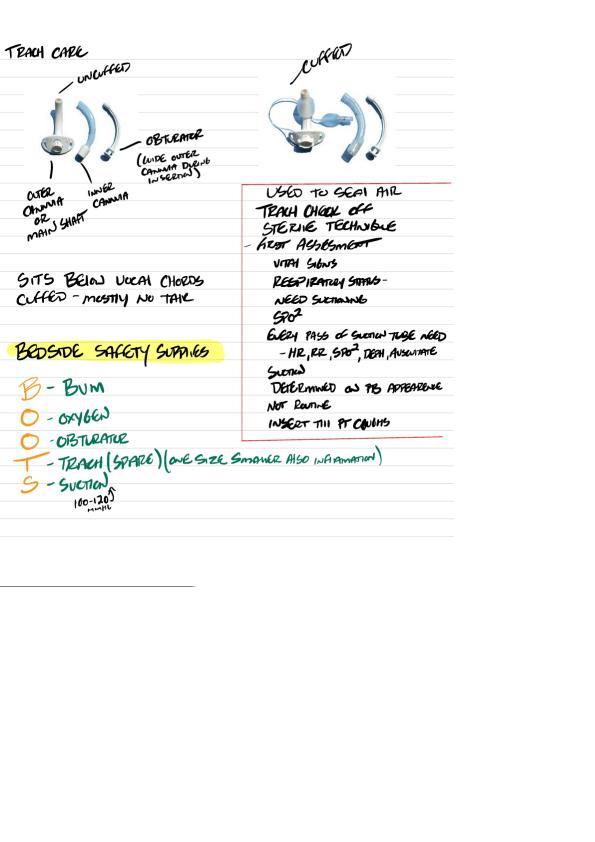 TRACH CARE
UNCUFFED
CUFFED
OBTURATOR
(GUIDE OUTER
CANNULA DURING
INSERTION)
OUTER
CANNULA
OR
MAIN SHAFT
INNER
CANNULA
SITS BELOW VOCAL CHORDS
CUFFED - MOSTLY NO TALK
USED TO SEAL AIR
TRACH CHECK OFF
STERILE TECHNIQUE
- FIRST ASSESMENT
VITAL SIGNS
RESPIRATORY STATUS -
NEED SUCTIONING
SPO2
EVERY PASS OF SUCTION TUBE NEED
- HR, RR, SPO2, DEPH, AUSCULTATE
SUCTION
DETERMINED ON PTS APPEARENCE
NOT ROUTINE
INSERT TILL PT COUGHS
BEDSIDE SAFETY SUPPLIES
B - BVM
O - OXYGEN
O - OBTURATOR
T - TRACH (SPARE) (ONE SIZE SMALLER ALSO INFLAMATION)
S - SUCTION
100-120
mmHg